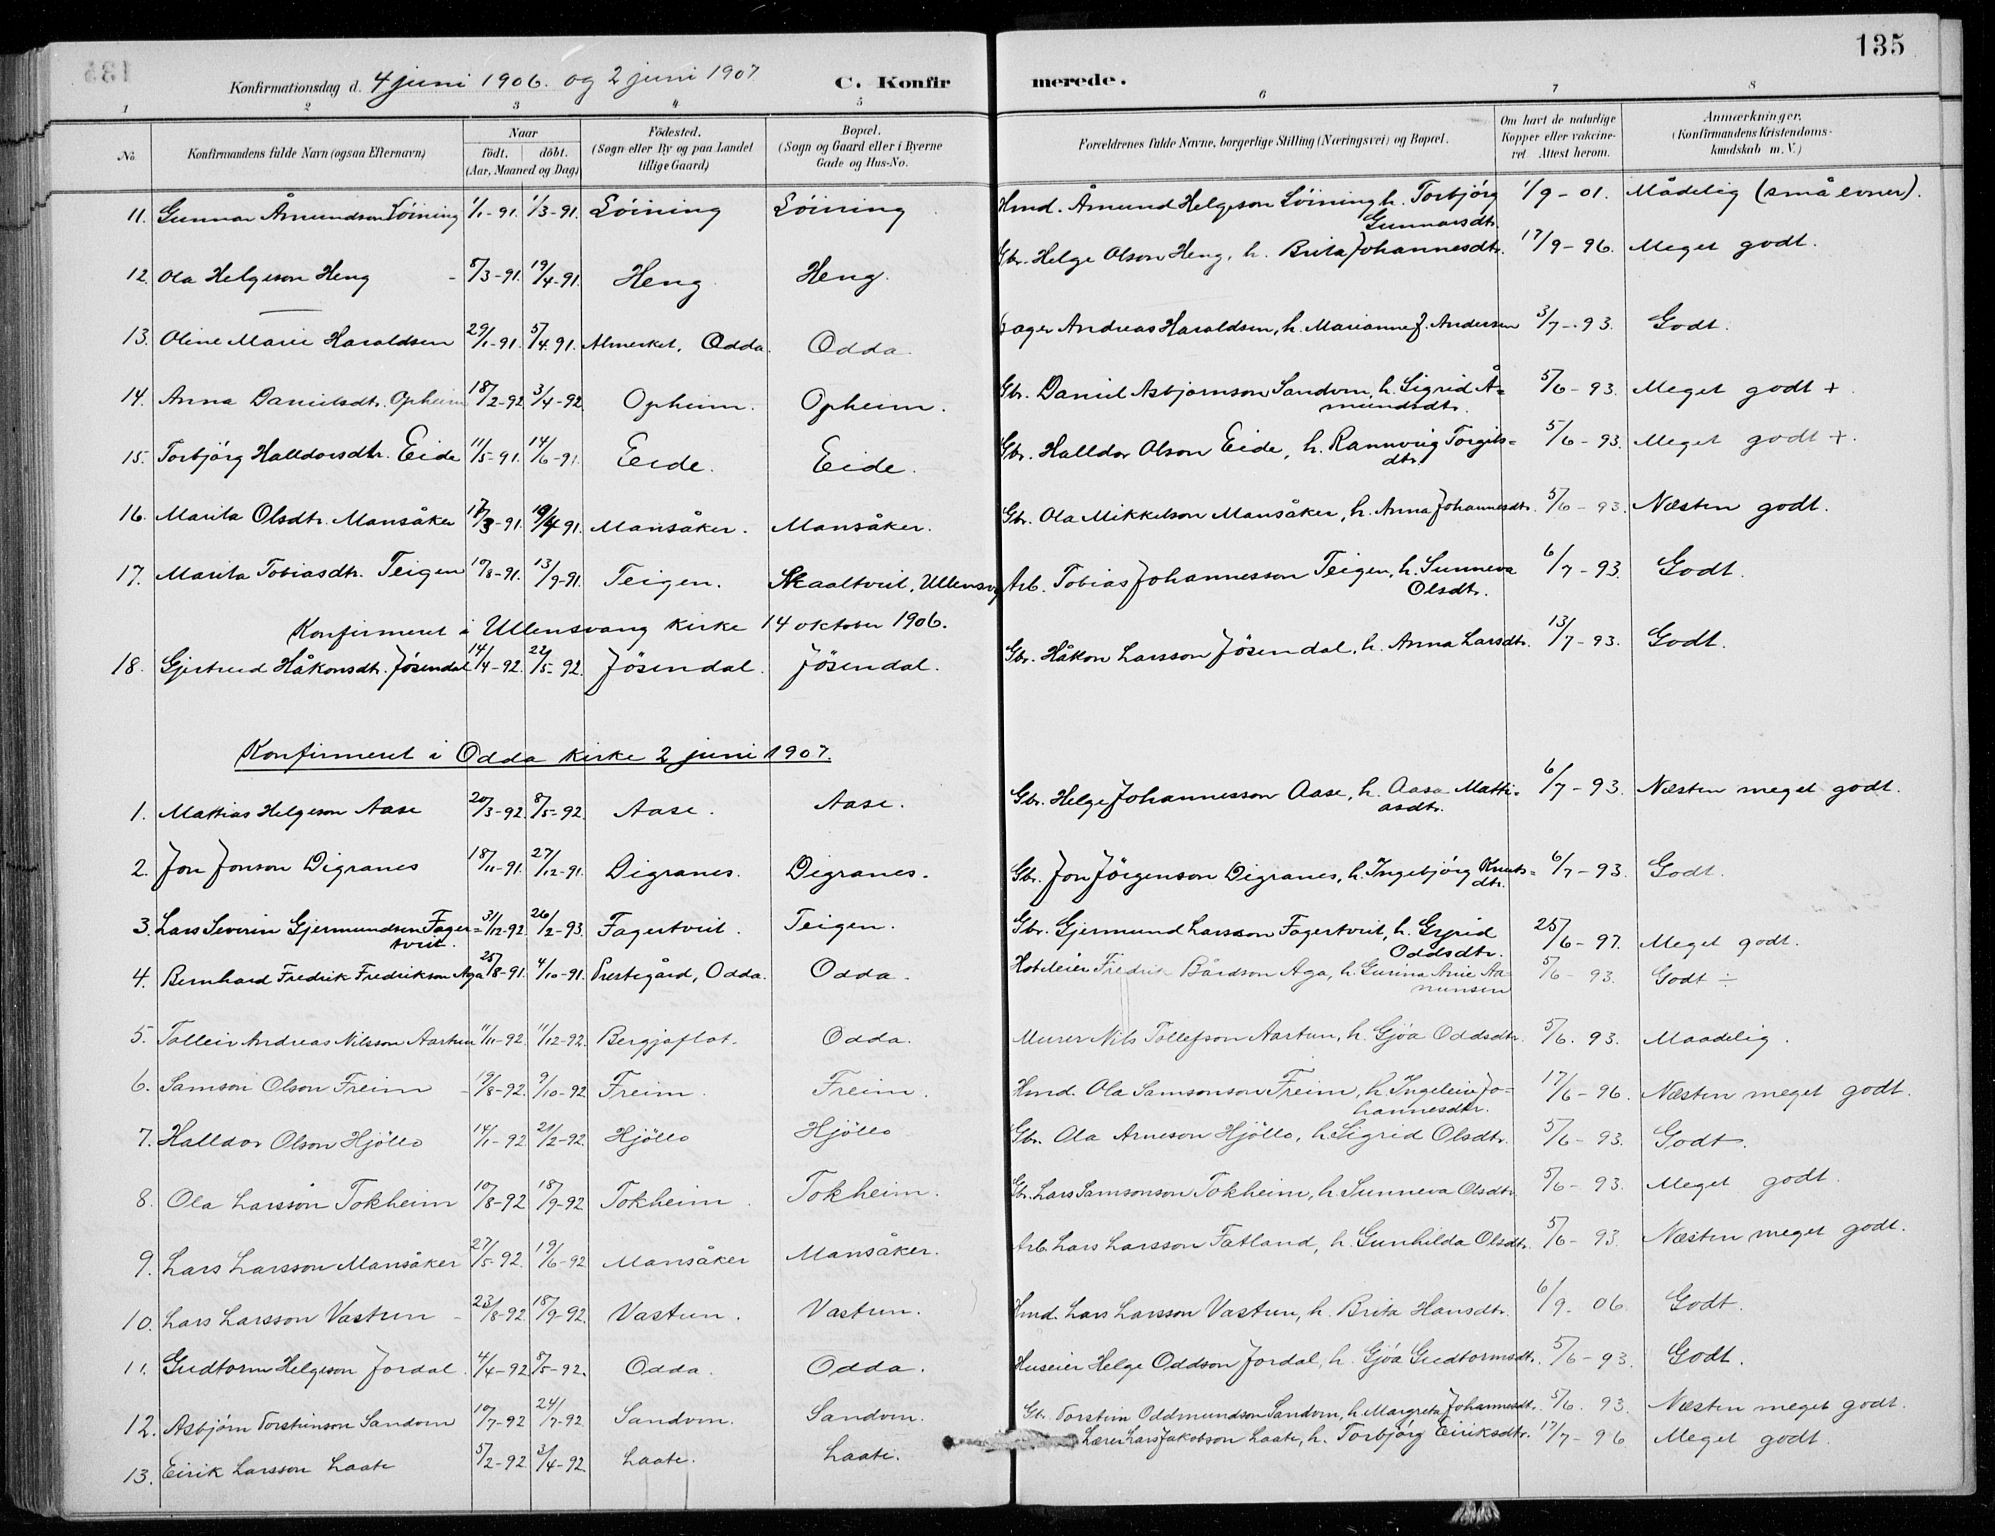 135
Konfirmationsdag d. 4 juni 1906. og 2 juni 1907 C. Konfirmerede.
1 2 3 4 5 6 7 8
No. Konfirmandens fulde Navn (ogsaa Efternavn) Naar født. døbt. (Aar, Maaned og Dag) Fødested. (Sogn eller By og paa Landet tillige Gaard) Bopæl. (Sogn og Gaard eller i Byerne Gade og Hus-No. Forældrenes fulde Navne, borgerlige Stilling (Næringsvei) og Bopæl. Om havt de naturlige Kopper eller vakcineret. Attest herom. Anmærkninger, (Konfirmandens Kristendomskundskab m. V.)
11. Gunnar Åmundson Löining 1/1-91. 1/3-91. Löining Löining Hmd. Åmund Helgeson Löining, h. Torbjörg Gunnarsdtr. 1/9-01. Mådelig (små evner).
12. Ola Helgeson Heng - 8/3-91. 19/4-91. Heng Heng. Gbr. Helge Olson Heng, h. Brita Johannesdtr. 17/9-96. Meget godt.
13. Oline Marie Haraldsen 29/1-91. 5/4.91. Almerket, Odda. Odda. Andreas Haraldsen, h. Marianne J. Andersen 3/7-93. Godt.
14. Anna Danielsdtr. Opheim 18/2-92 3/4-92 Opheim. Opheim. Gbr. Daniel Asbjørnson Sandven, h. Sigrid Åmundsdtr. 5/6-93. Meget godt +.
15. Torbjörg Halldorsdtr. Eide 11/5-91. 14/6-91. Eide. Eide. Gbr. Halldor Olson Eide, h. Rannveig Torgilsdtr. 5/6-93. Meget godt +.
16. Marita Olsdtr. Mansåker 17/3-91. 19/4 91. Mansåker. Mansåker. Gbr. Ola Mikkelson Mansåker, h. Anna Johannesdtr. 5/6-93. Næsten godt.
17. Marita Tobiasdtr. Teigen 17/8-91. 13/9-91. Teigen. Skaaltveit, Ullensvg Arb. Tobias Johannesson Teigen, h. Sunneva Olsdtr. 6/7-93. Godt.
Konfirmeret i Ullensvang kirke 14 oktober 1906.
18. Gjertrud Håkonsdtr. Jösendal 14/4-92. 22/5-92. Jösendal. Jösendal. Gbr. Håkon Larsson Jösendal, h. Anna Larsdtr. 13/7-93. Godt.
Konfirmeret i Odda kirke 2 juni 1907.
1. Mattias Helgeson Aase 20/3-92. 8/5-92. Aase. Aase. Gbr. Helge Johannesson Aase, h. Aasa Mattiasdtr. 6/7-93. Næsten meget godt.
2. Jon Jonson Digranes 18/11-91. 27/12-91. Digranes. Digranes. Gbr. Jon Jörgenson Digranes, h. Ingebjörg Knutsdtr. 6/7-93. Godt.
3. Lars Severin Gjermundsen Fagertveit. 31/12-92. 26/2-93. Fagertveit. Teigen. Gbr. Gjermund Larsson Fagertveit, h. Gyrid Oddsdtr. 25/6-97. Meget godt.
4. Bernhard Fredrik Fredrikson Aga 25/8-91. 4/10-91. Prestegård, Odda. Odda. Hoteleier Fredrik Bårdson Aga, h. Gurina Anie Aamunsen 5/6-93. Godt ÷
5. Tolleiv Andreas Nilsson Aartun 11/11-92. 11/12-92. Bergjaflot. Odda. Murer Nils Tollefson Aartun, h. Gjöa Oddsdtr. 5/6.93. Maadelig.
6. Samson Olson Freim - 19/8-92. 9/10-92. Freim. Freim. Hmd. Ola Samsonson Freim, h. Ingeleiv Johannesdtr. 17/6-96. Næsten meget godt.
7. Halldor Olson Hjöllo 14/1-92 21/2-92. Hjöllo Hjöllo Gbr. Ola Arneson Hjöllo, h. Sigrid Olsdtr. 5/6-93. Godt.
8. Ola Larsson Tokheim 10/8-92 18/9-92 Tokheim. Tokheim. Gbr. Lars Samsonson Tokheim, h. Sunneva Olsdtr. 5/6-93. Meget godt.
9. Lars Larsson Mansåker 27/5-92. 19/6-92 Mansåker Mansåker. Arb. Lars Larsson Fatland, h. Gunhilda Olsdtr. 5/6-93. Næsten meget godt.
10. Lars Larsson Vastun - 23/8-92 18/9-92. Vastun. Vastun. Hmd. Lars Larsson Vastun, h. Brita Hansdtr. 6/9-06. Godt.
11. Gudtorm Helgeson Jordal. 4/4-92 8/5-92. Odda. Odda. Huseier Helge Oddson Jordal, h. Gjöa Gudtormsdtr. 5/6-93. Godt.
12. Asbjörn Torsteinson Sandven 10/7-92 24/7-92. Sandven. Sandven. Gbr. Torstein Oddmundson Sandven, h. Margreta Johannesdtr. 5/6.93. Næsten meget godt.
13. Eirik Larsson Laate 5/2-92 3/4-92 Laate. Laate. Lærer Lars Jakobson Laate, h. Torbjörg Eiriksdtr. 17/7-96 Meget godt.